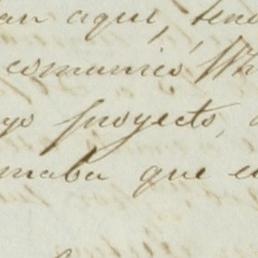 an aquí, ten
comunicó Wh
yo proyecto,
maba que e